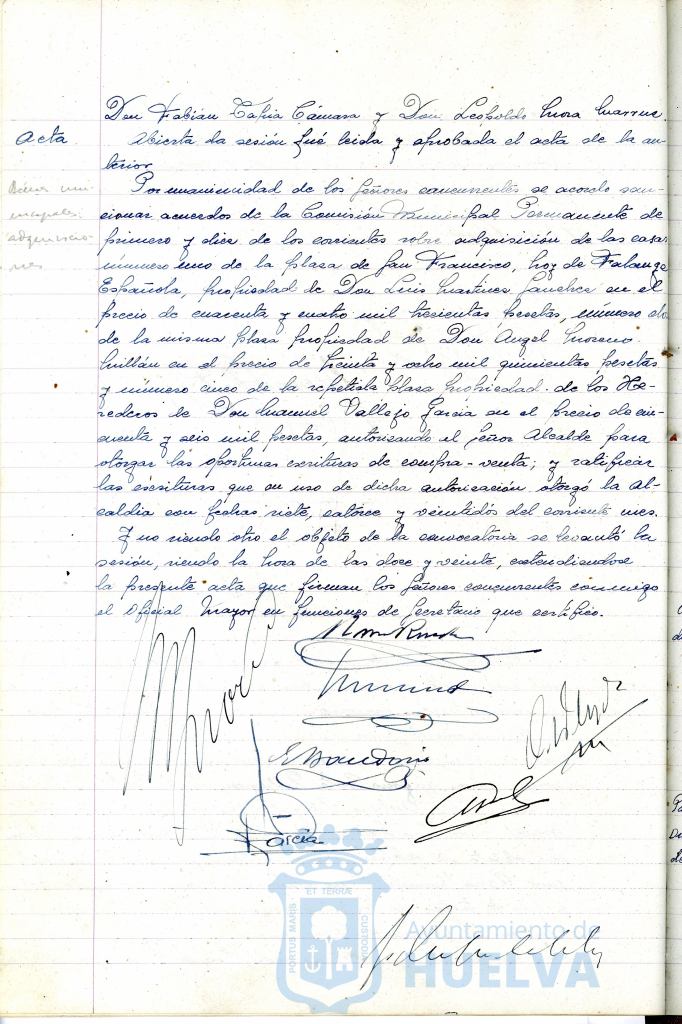 Don Fabián Tapia Cámara y Don Leopoldo Mora
Acta
Abierta la sesión fué leida y aprobada el acta de la an-
terior.
Bienes mu-
nicipales:
adquisicio-
nes
Por unanimidad de los Señores concurrentes se acordo san-
cionar acuerdos de la Comisión Municipal Permanente de
primero y diez de los corrientes sobre adquisición de las casas
número uno de la plaza de San Francisco, hoy de Falange
Española, propiedad de Don Luis Martinez Sanchez en el
precio de cuarenta y cuatro mil trecientas pesetas, número dos
de la misma plaza propiedad de Don Angel Moreno
Millán en el precio de treinta y ocho mil quinientas pesetas
y número cinco de la repetida plaza propiedad de los He-
rederos de Don Manuel Vallejo García en el precio de cin-
cuenta y seis mil pesetas, autorizando al Señor Alcalde para
otorgar las oportunas escrituras de compra-venta; y ratificar
las escrituras que en uso de dicha autorización otorgó la Al-
caldia con fechas siete, catorce y veintidos del corriente mes.
Y no siendo otro el objeto de la convocatoria se levantó la
sesión, siendo la hora de las doce y veinte, extendiendose
la presente acta que firman los Señores concurrentes conmigo
el Oficial Mayor en funciones de Secretario que certifico.
García
PORTUS MARIS ET TERRÆ CUSTODIA
Ayuntamiento de
HUELVA